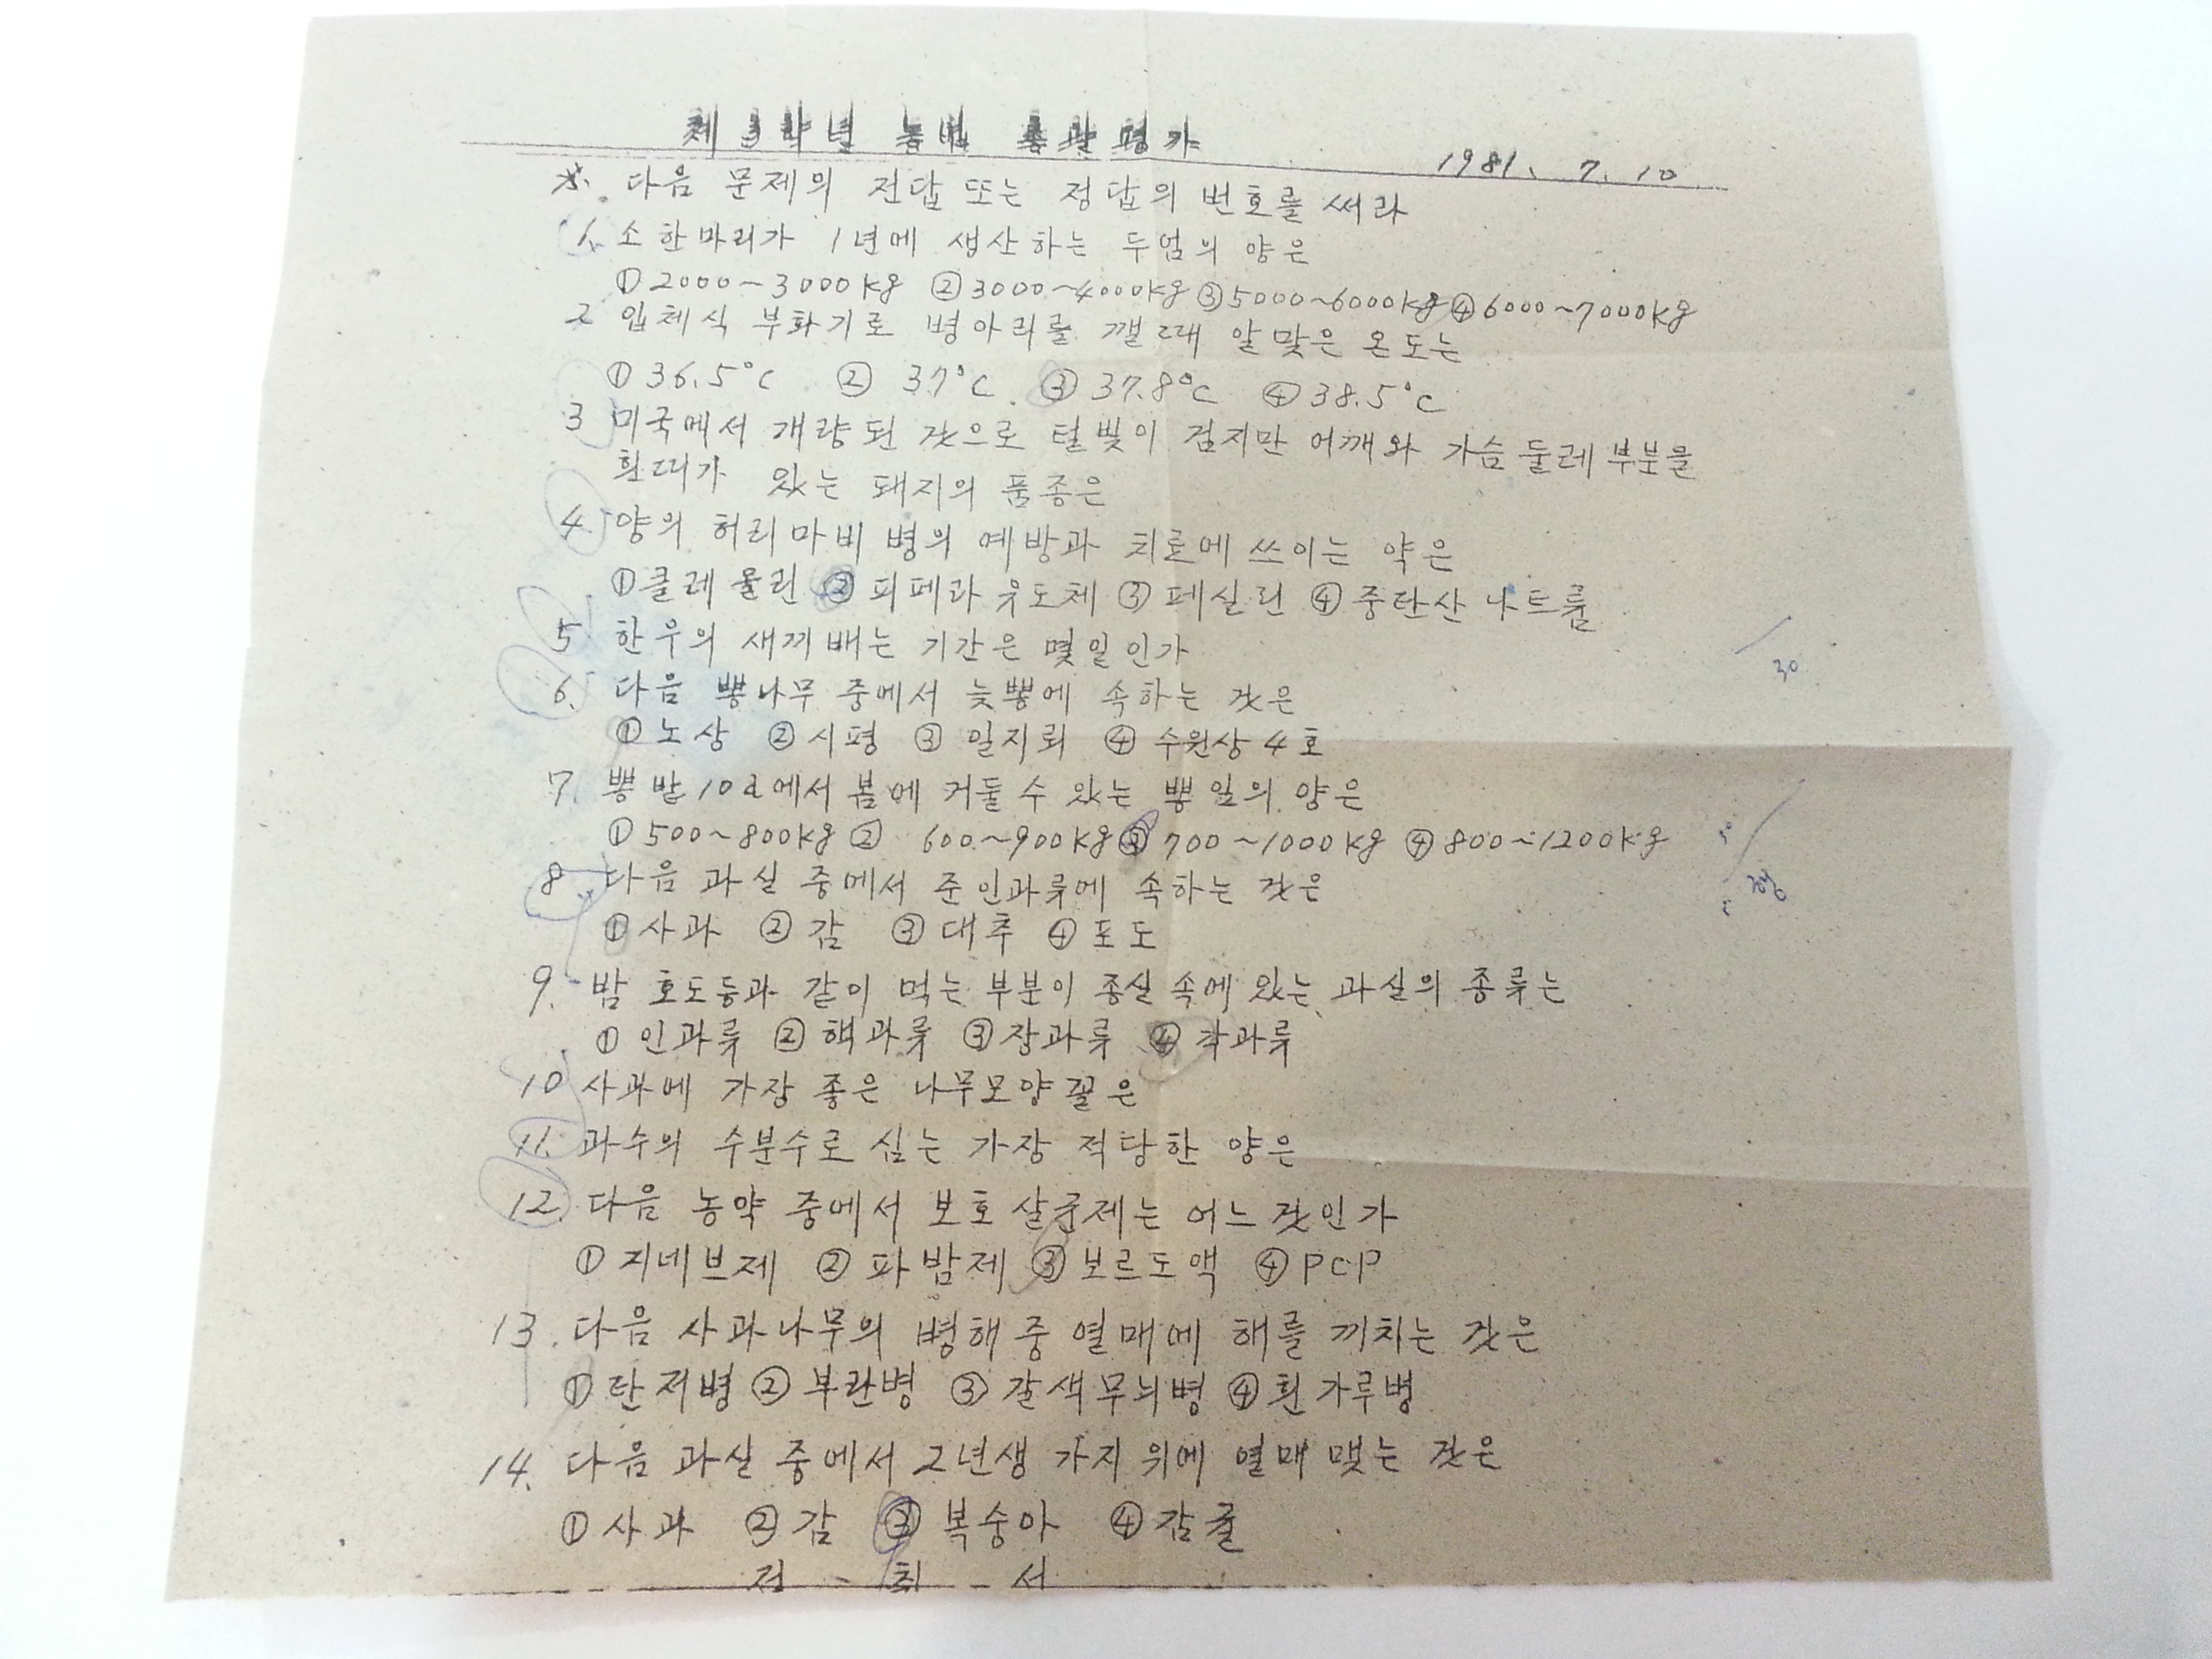 제 3학년 농업 총괄평가
1981. 7. 10
※. 다음 문제의 전답 또는 정답의 번호를 써라
1. 소 한마리가 1년에 생산하는 두엄의 양은
① 2000~3000kg ② 3000~4000kg ③ 5000~6000kg ④ 6000~7000kg
2 입체식 부화기로 병아리를 깰때 알맞은 온도는
① 36.5°C ② 37°C ③ 37.8°C ④ 38.5°C
3 미국에서 개량된 것으로 털빛이 검지만 어깨와 가슴둘레 부분을
흰띠가 있는 돼지의 품종은
4 양의 허리마비 병의 예방과 치료에 쓰이는 약은
① 클레 올린 ② 피페라 유도체 ③ 페실린 ④ 중탄산 나트륨
5 한우의 새끼 배는 기간은 몇일인가
6. 다음 뽕나무 중에서 늦뽕에 속하는 것은
① 노상 ② 시평 ③ 일지뢰 ④ 수원상 4호
7. 뽕밭 10a에서 봄에 거둘 수 있는 뽕잎의 양은
① 500~800kg ② 600~900kg ③ 700~1000kg ④ 800~1200kg
8 다음 과실 중에서 준인과류에 속하는 것은
① 사과 ② 감 ③ 대추 ④ 포도
9. 밤 호도등과 같이 먹는 부분이 종실 속에 있는 과실의 종류는
① 인과류 ② 핵과류 ③ 장과류 ④ 각과류
10 사과에 가장 좋은 나무모양 꼴은
11. 과수의 수분수로 심는 가장 적당한 양은
12. 다음 농약 중에서 보호 살균제는 어느 것인가
① 지네브제 ② 파밤제 ③ 보르도액 ④ PCP
13. 다음 사과나무의 병해 중 열매에 해를 끼치는 것은
① 탄저병 ② 부란병 ③ 갈색무늬병 ④ 흰가루병
14. 다음 과실 중에서 2년생 가지 위에 열매 맺는 것은
① 사과 ② 감 ③ 복숭아 ④ 감귤
30